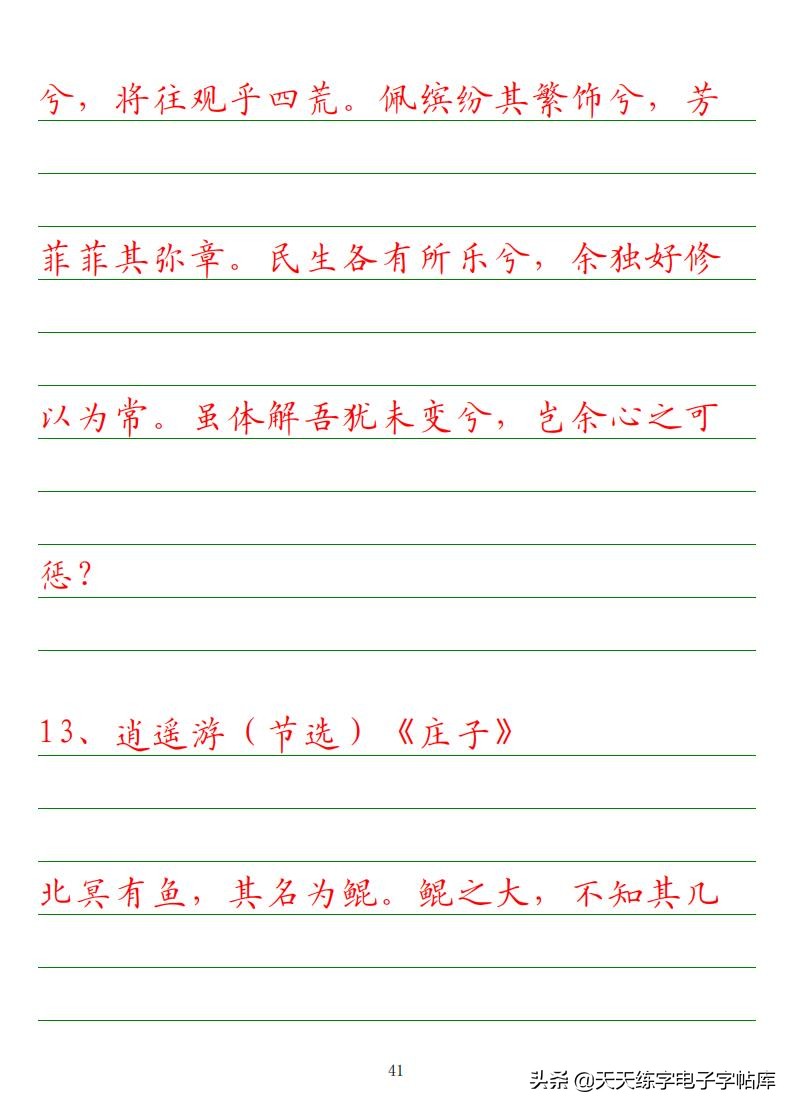 兮，将往观乎四荒。佩缤纷其繁饰兮，芳
菲菲其弥章。民生各有所乐兮，余独好修
以为常。虽体解吾犹未变兮，岂余心之可
惩？
13、逍遥游（节选）《庄子》
北冥有鱼，其名为鲲。鲲之大，不知其几
41
头条 @天天练字电子字帖库